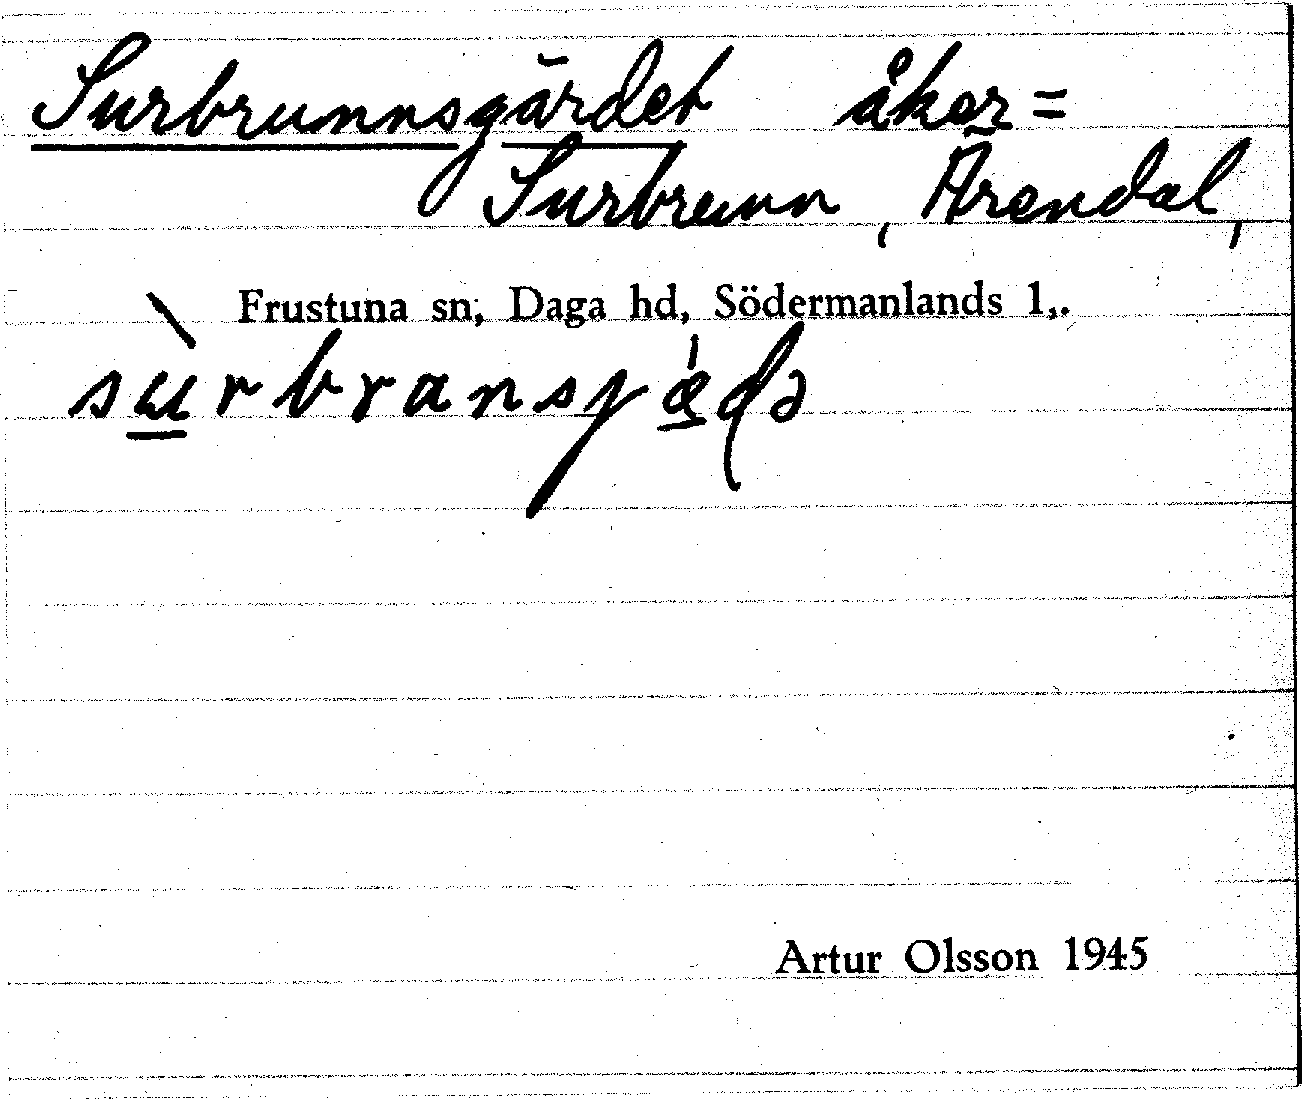 Surbrunnsgärdet åker =
Surbrunn, Ärendal,
Frustuna sn, Daga hd, Södermanlands l,.
Artur Olsson 1945